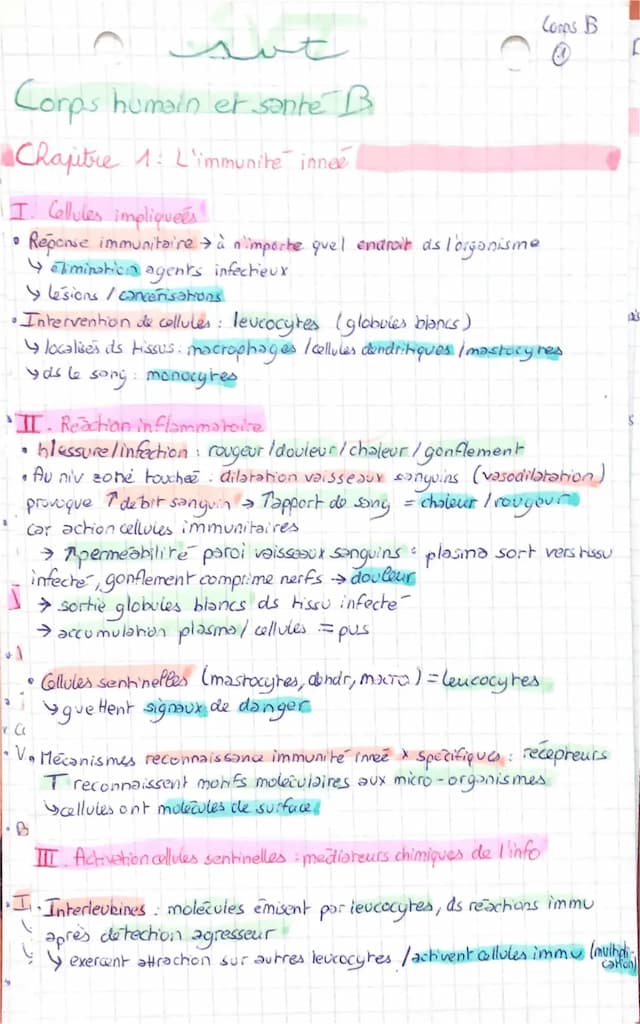 Corps B
①
svt
Corps humain et santé B
Chapitre 1: L'immunité innée
I. Cellules impliquées
• Réponse immunitaire → à n'importe quel endroit ds l'organisme
↳ élimination agents infectieux
↳ lésions / cancérisations
• Intervention de cellules : leucocytes (globules blancs)
↳ localisés ds tissus : macrophages / cellules dendritiques / mastocytes
↳ ds le sang : monocytes
II. Réaction inflammatoire
• blessure/infection : rougeur / douleur / chaleur / gonflement
• Au niv zone touchée : dilatation vaisseaux sanguins (vasodilatation)
provoque ↑ débit sanguin → ↑ apport de sang = chaleur / rougeur
car action cellules immunitaires
→ ↑ perméabilité paroi vaisseaux sanguins : plasma sort vers tissu
infecté, gonflement comprime nerfs → douleur
→ sortie globules blancs ds tissu infecté
→ accumulation plasma / cellules = pus
• Cellules sentinelles (mastocytes, dendr, macro) = leucocytes
↳ guettent signaux de danger
• Mécanismes reconnaissance immunité innée x spécifiques : récepteurs
T reconnaissent motifs moléculaires aux micro-organismes
↳ cellules ont molécules de surface
III. Activation cellules sentinelles : médiateurs chimiques de l'info
• Interleukines : molécules émisent par leucocytes, ds réactions immu
après détection agresseur
↳ exercent attraction sur autres leucocytes / activent cellules immu (multipli-
cation)